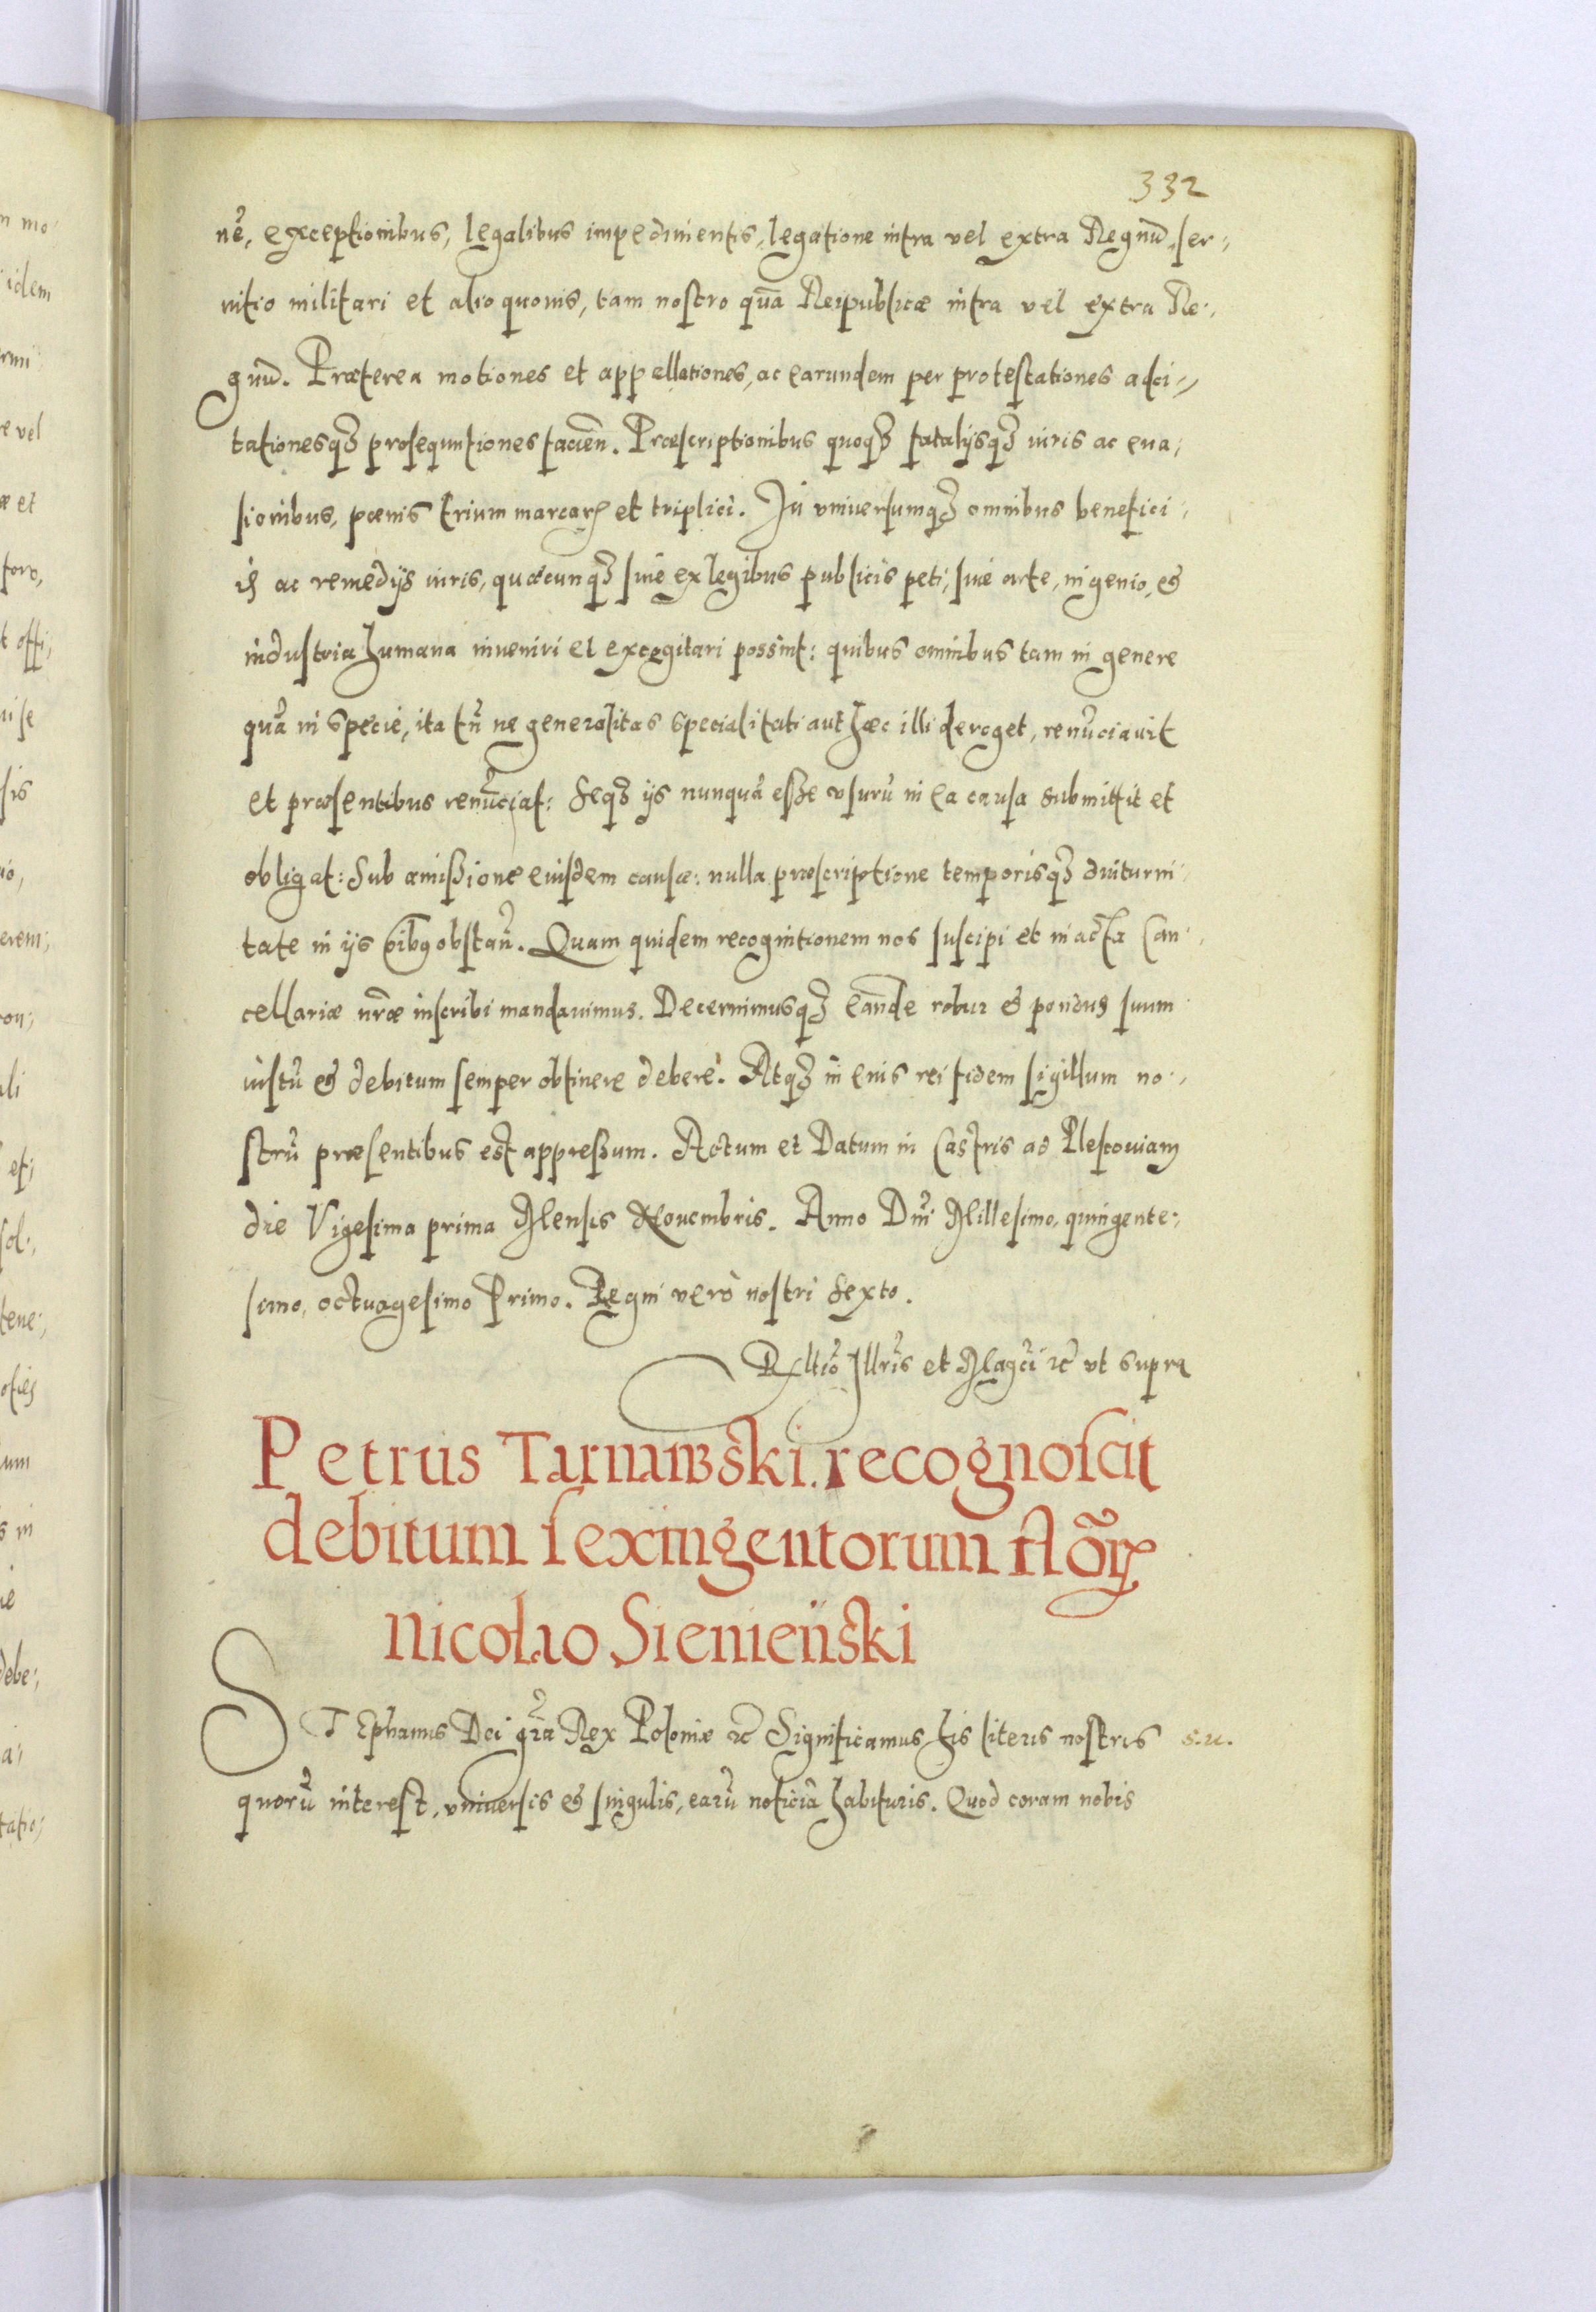 332
nē, exceptionibus, legalibus impedimentis, legatione intra vel extra Regnū, ser,,
uitio militari et alio quouis, tam nostro quā Reipublicæ intra vel extra Re,,
gnū. Præterea motiones et appellationes, ac earundem per protestationes adci,,
tationesq₃ prosequutiones facien̄. Præscriptionibus quoq₃ fatalijsq₃ iuris ac eua,
sionibus, pœnis trium marcarꝝ et triplici. In vniuersumq₃ omnibus benefici,
is ac remedijs iuris, quæcunq₃ siue ex legibus publicis peti, siue arte, ingenio, et
industria humana inveniri et excogitari possint: quibus omnibus tam in genere
quā in specie, ita tn̄ ne generalitas specialitati aut hæc illi deroget, renūciauit
et præsentibus renūciat: Seq₃ ijs nunquā esse vsurū in ea causa submittit et
obligat: Sub amissione eiusdem causæ: nulla præscriptione temporisq₃ diuturni,
tate in ijs oībꝰ obstan̄. Quam quidem recognitionem nos suscipi et in acta Can,
cellariæ nr̄æ inscribi mandauimus. Decernimusq₃ eandē robur et pondus suum
iustū et debitum semper obtinere debere. Atq₃ in euis rei fidem sigillum no,,
strū præsentibus est appressum. Actum et Datum in Castris ad Plescouiam
die Vigesima prima Mensis Nouembris. Anno Dnī Millesimo, quingente,,
simo, octuagesimo Primo. Regni vero nostri Sexto.
Rltiō Illrīs et Magcī ꝛc̄ vt supra
Petrus Tarnawski. recognoscit
debitum sexingentorum flōrꝝ
Nicolao Sienieński
STEphanus Dei gr̄a Rex Poloniæ ꝛc̄ Significamus his literis nostris s.u.
quorū interest, vniuersis et singulis, earū noticiā habituris. Quod coram nobis